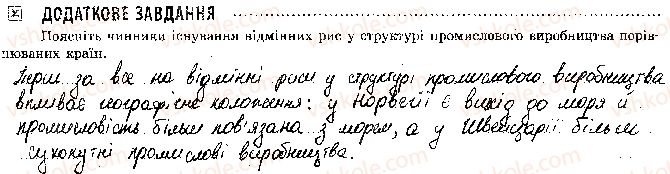 ДОДАТКОВЕ ЗАВДАННЯ
Поясніть чинники існування відмінних рис у структурі промислового виробництва порів-
нюваних країн.
Перш за все на відмінні риси у структурі промислового виробництва
впливає географічне положення: у Норвегії є вихід до моря й
промисловість більш пов'язана з морем, а у Швейцарії більш
сухопутні промислові виробництва.